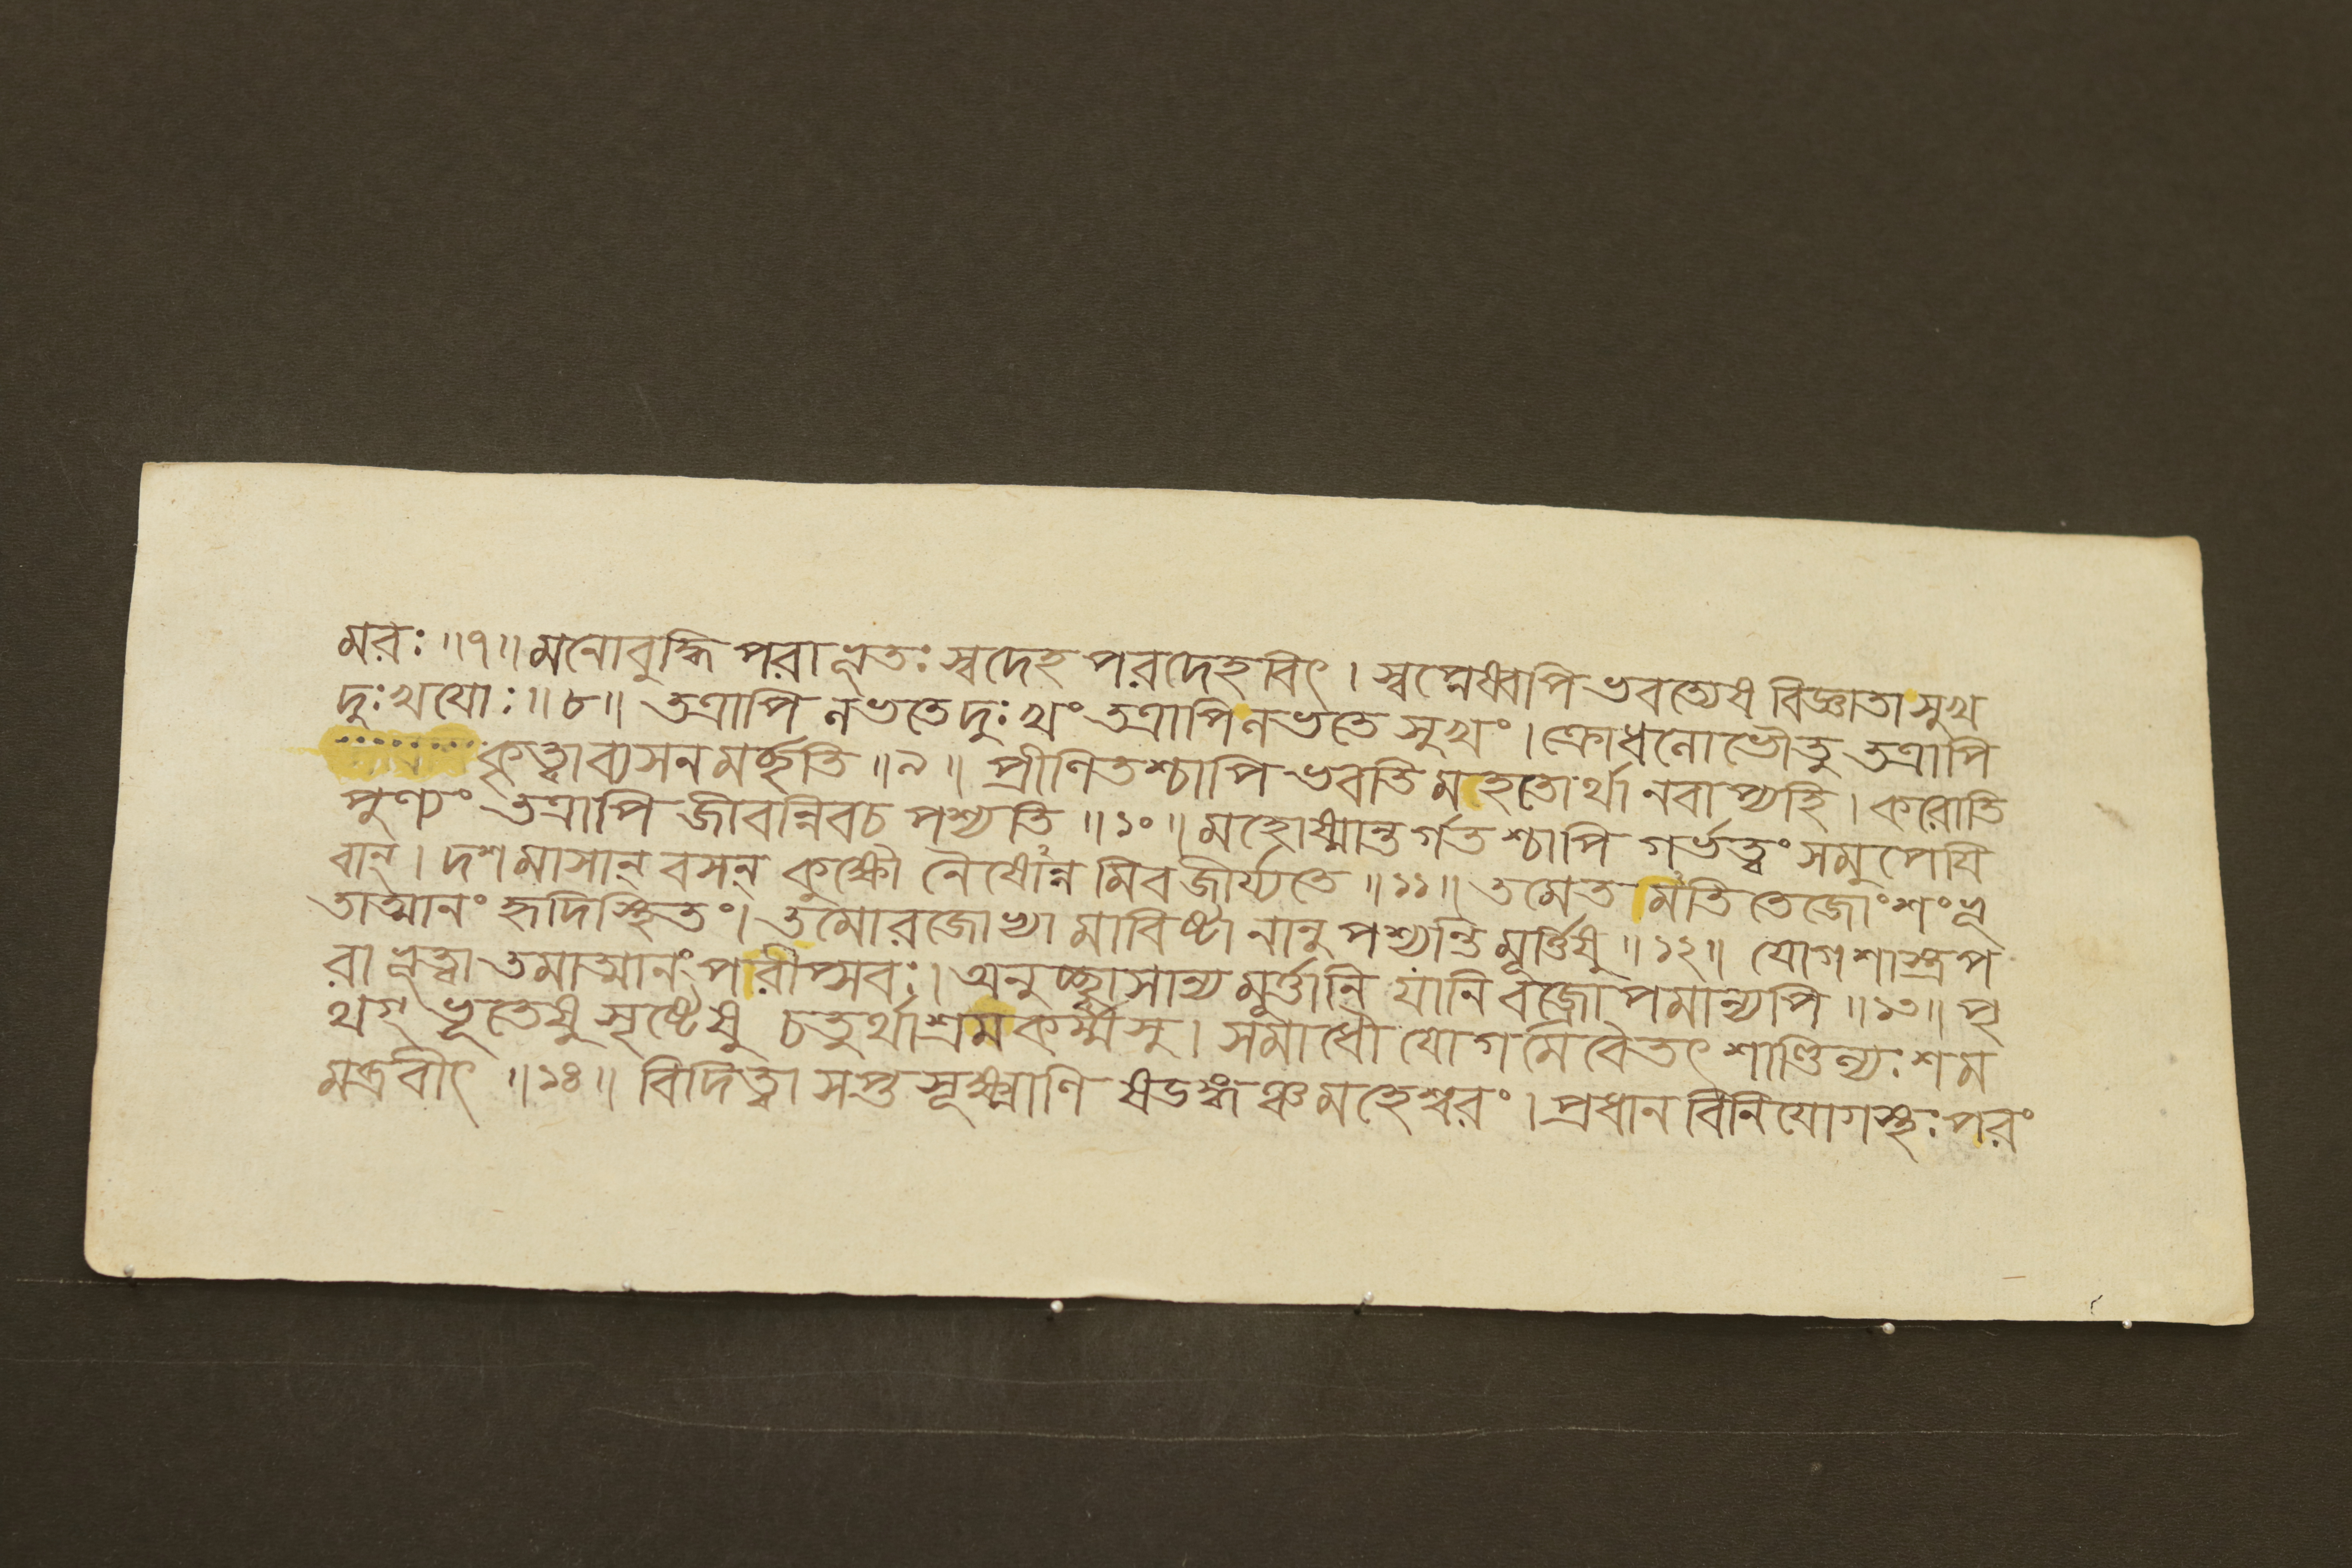 মরঃ ॥৭॥ মনোবুদ্ধি পরাভূতঃ স্বদেহ পরদেহবিৎ । স্বপ্নেষ্বপি ভবত্যেষ বিজ্ঞাতা সুখ
দুঃখযোঃ ॥৮॥ তত্রাপি নভতে দুঃখং তত্রাপি নভতে সুখং । ক্রোধনোভৌতু তত্রাপি
কৃত্বা ব্যসনমর্চ্ছতি ॥৯॥ প্রীণিতশ্চাপি ভবতি মহতোর্থানবাপ্যহি । করোতি
পুণ্যং তত্রাপি জীবন্নিবচ পশ্যতি ॥১০॥ মহোষ্মান্তর্গতশ্চাপি গর্ভত্বং সমুপেযি
বান্ । দশমাসান্ বসন্ কুক্ষৌ নৈষোন্নমিবজীর্য্যতে ॥১১॥ তমেতমতিতেজোংশং ভূ
তাত্মানং হৃদিস্থিতং । তমোরজোভ্যামাবিষ্টা নানুপশ্যন্তি মূর্ত্তিষু ॥১২॥ যোগশাস্ত্রপ
রা ভূত্বা তমাত্মানং পরীপ্সবঃ । অনুচ্ছ্বাসান্যমূর্ত্তানি যানি বজ্রোপমান্যপি ॥১৩॥ পৃ
থগ্ ভূতেষু সৃষ্টেষু চতুর্থাশ্রমকর্ম্মসু । সমাধৌ যোগমেবৈতৎ শাণ্ডিল্যঃ শম
মব্রবীৎ ॥১৪॥ বিদিত্বা সপ্তসূক্ষ্মাণি ষডঙ্গঞ্চ মহেশ্বরং । প্রধানবিনিযোগস্থঃ পরং